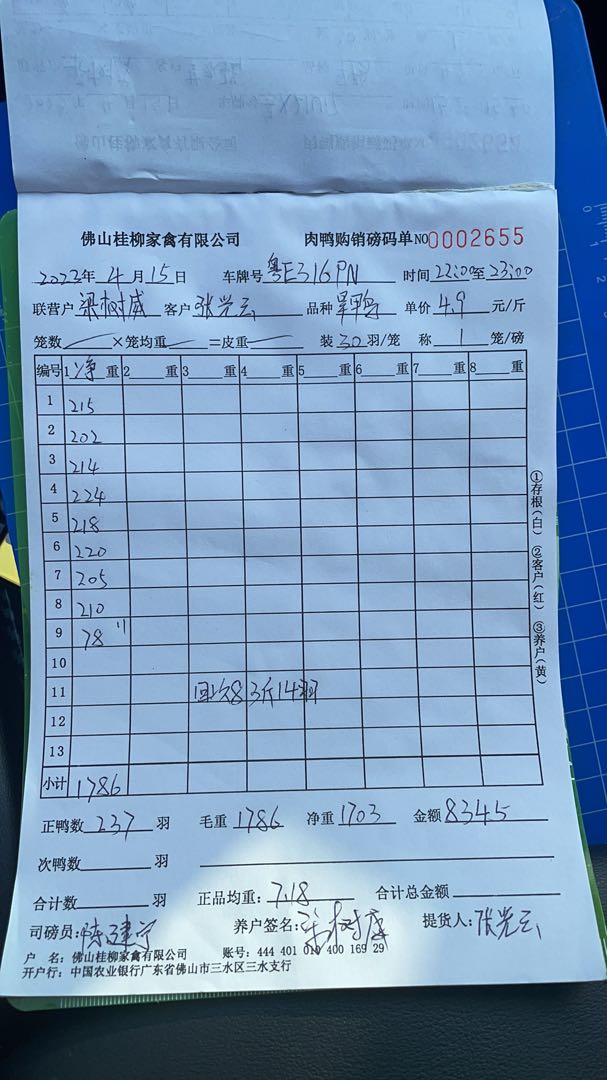 佛山桂柳家禽有限公司 肉鸭购销磅码单 NO 0002655
2023年 4 月 15 日 车牌号 粤E316PN 时间 22:00至23:00
联营户 梁树威 客户 张光云 品种 旱鸭 单价 4.9 元/斤
笼数 ×笼均重 =皮重 装 30 羽/笼 称 1 笼/磅
编号 1 净 重 2 重 3 重 4 重 5 重 6 重 7 重 8 重
1 215
2 202
3 214
4 224
5 218
6 220
7 205
8 210
9 78 11
10
11 回次83斤14羽
12
13
小计 1786
①存根(白) ②客户(红) ③养户(黄)
正鸭数 237 羽 毛重 1786 净重 1703 金额 8345
次鸭数 羽
合计数 羽 正品均重: 7.18 合计总金额
司磅员: 陈建宁 养户签名: 提货人: 张光云
户 名: 佛山桂柳家禽有限公司 账号: 444 401 010 400 169 29
开户行: 中国农业银行广东省佛山市三水区三水支行